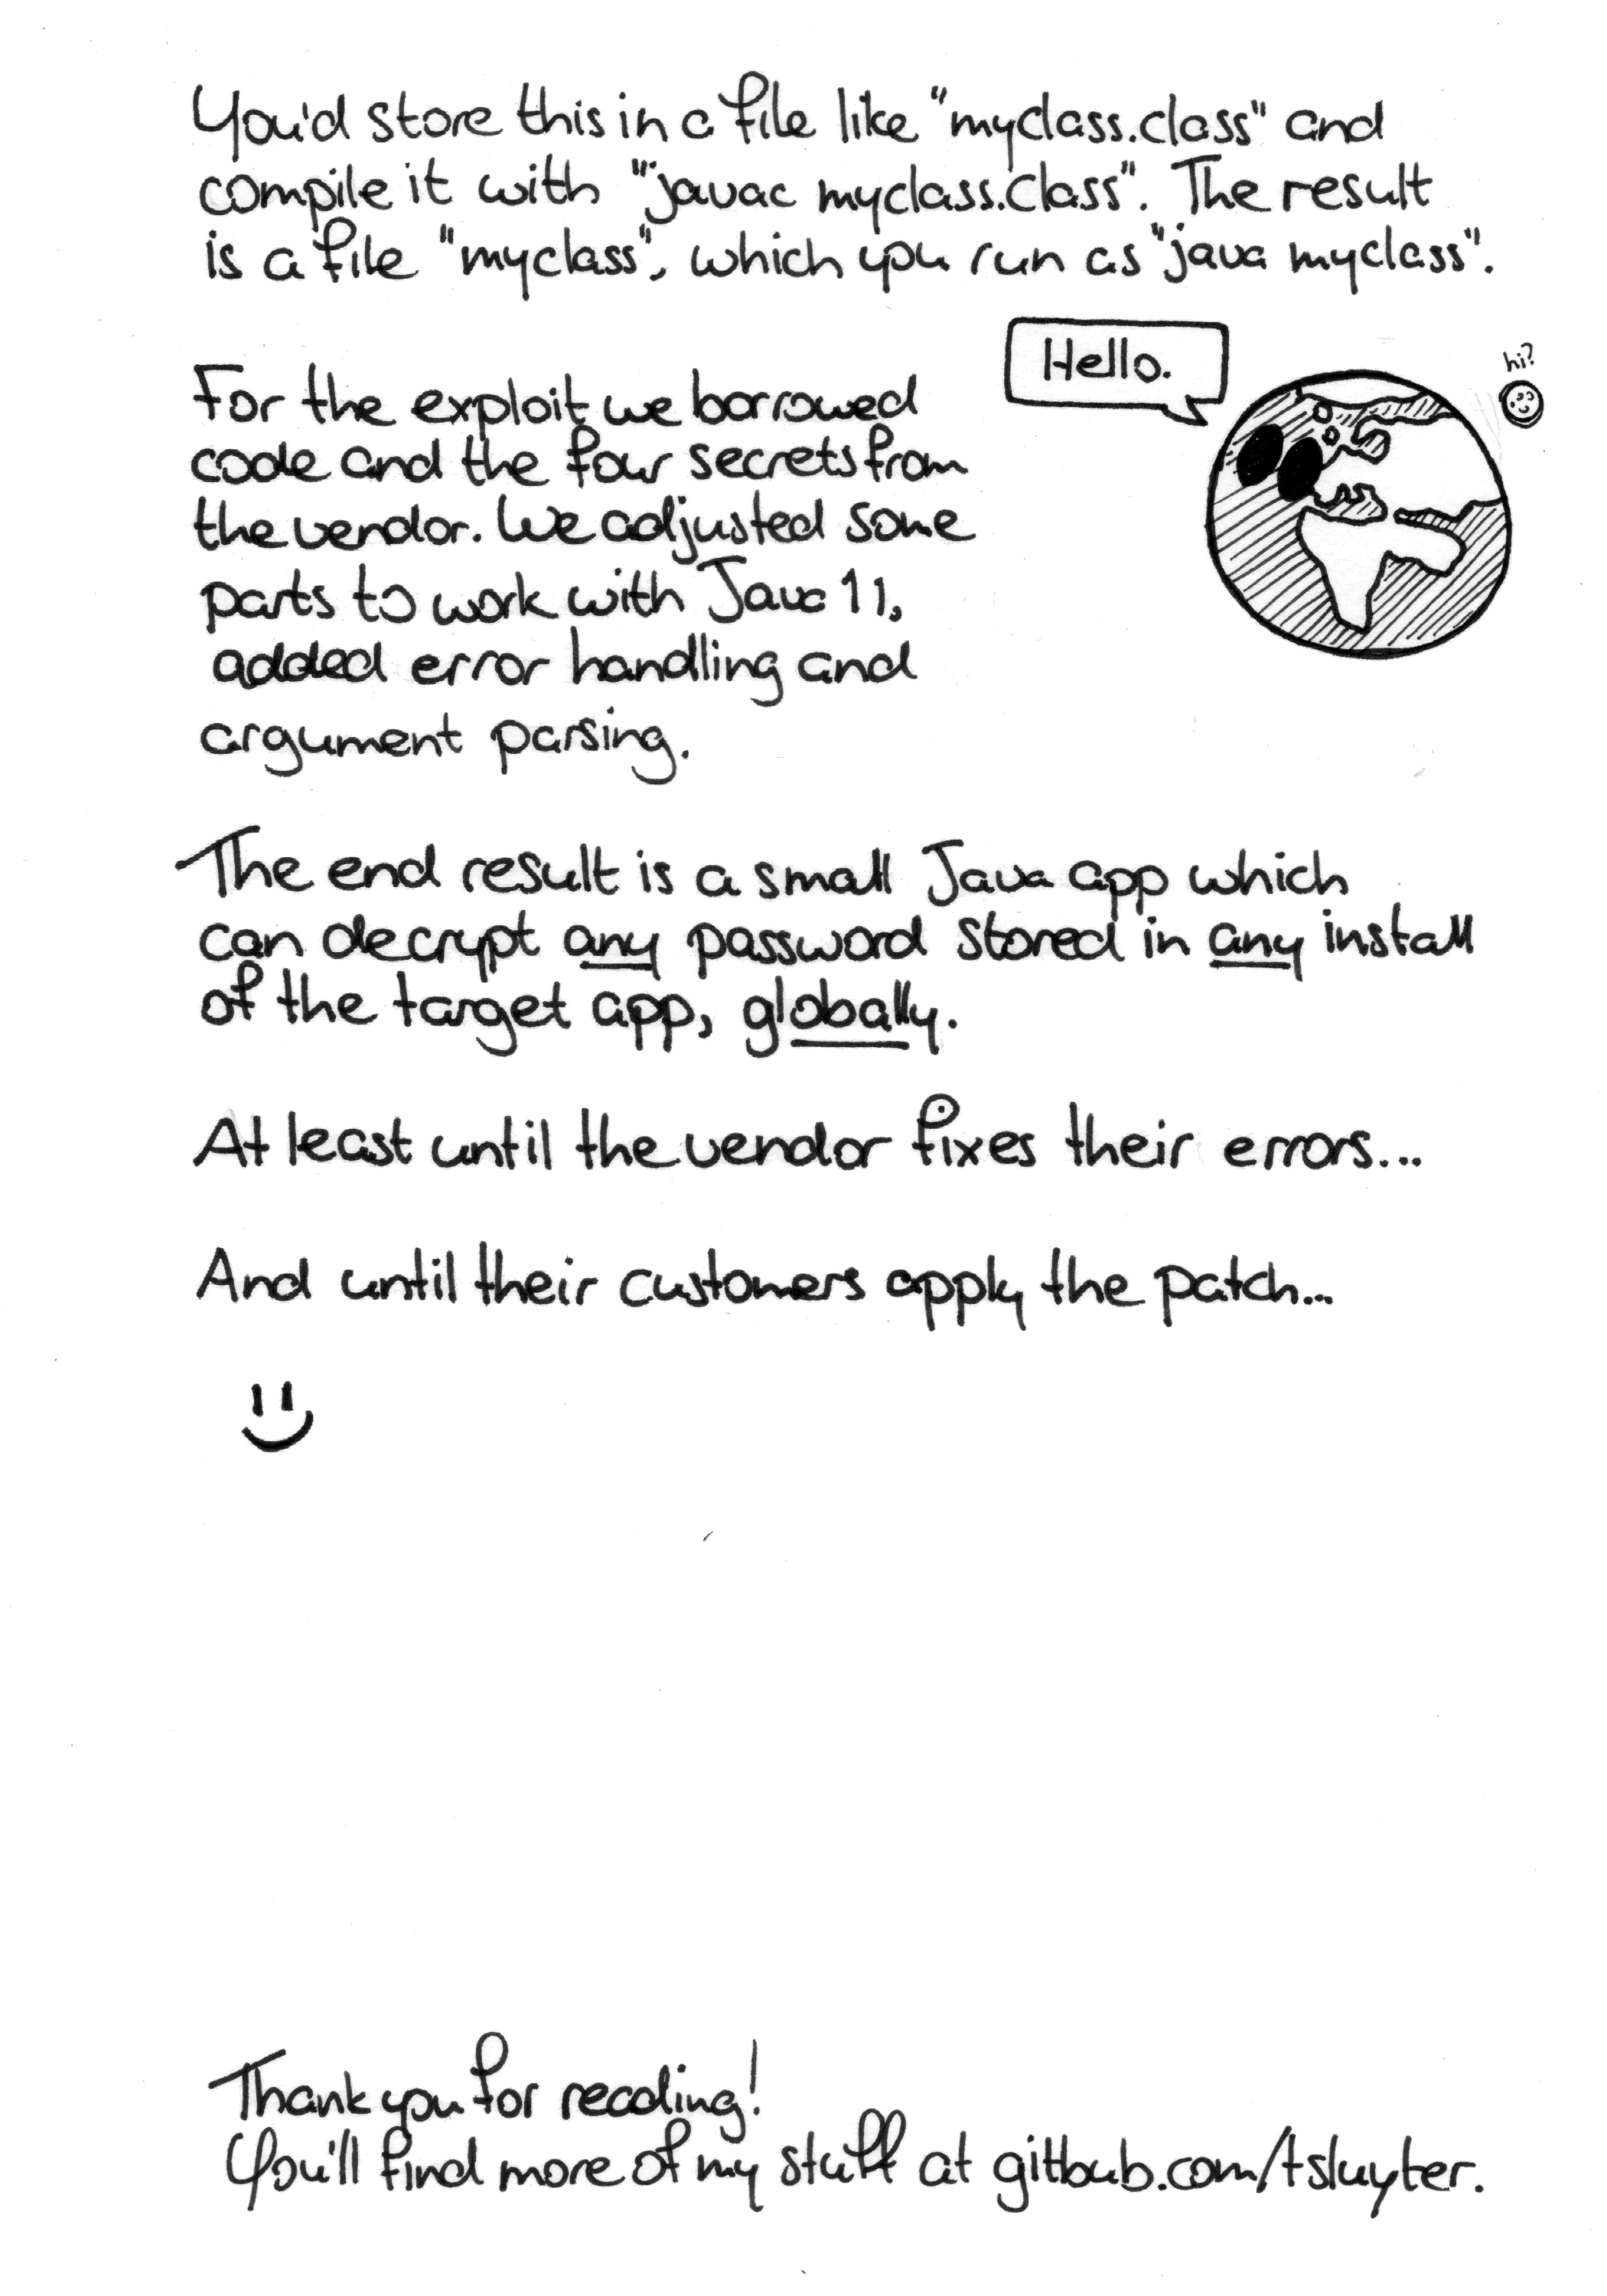 You'd store this in a file like "myclass.class" and
compile it with "javac myclass.class". The result
is a file "myclass", which you run as "java myclass".
Hello.
hi?
For the exploit we borrowed
code and the four secrets from
the vendor. We adjusted some
parts to work with Java 11,
added error handling and
argument parsing.
The end result is a small Java app which
can decrypt any password stored in any install
of the target app, globally.
At least until the vendor fixes their errors...
And until their customers apply the patch...
Thank you for reading!
You'll find more of my stuff at github.com/tsluyter.